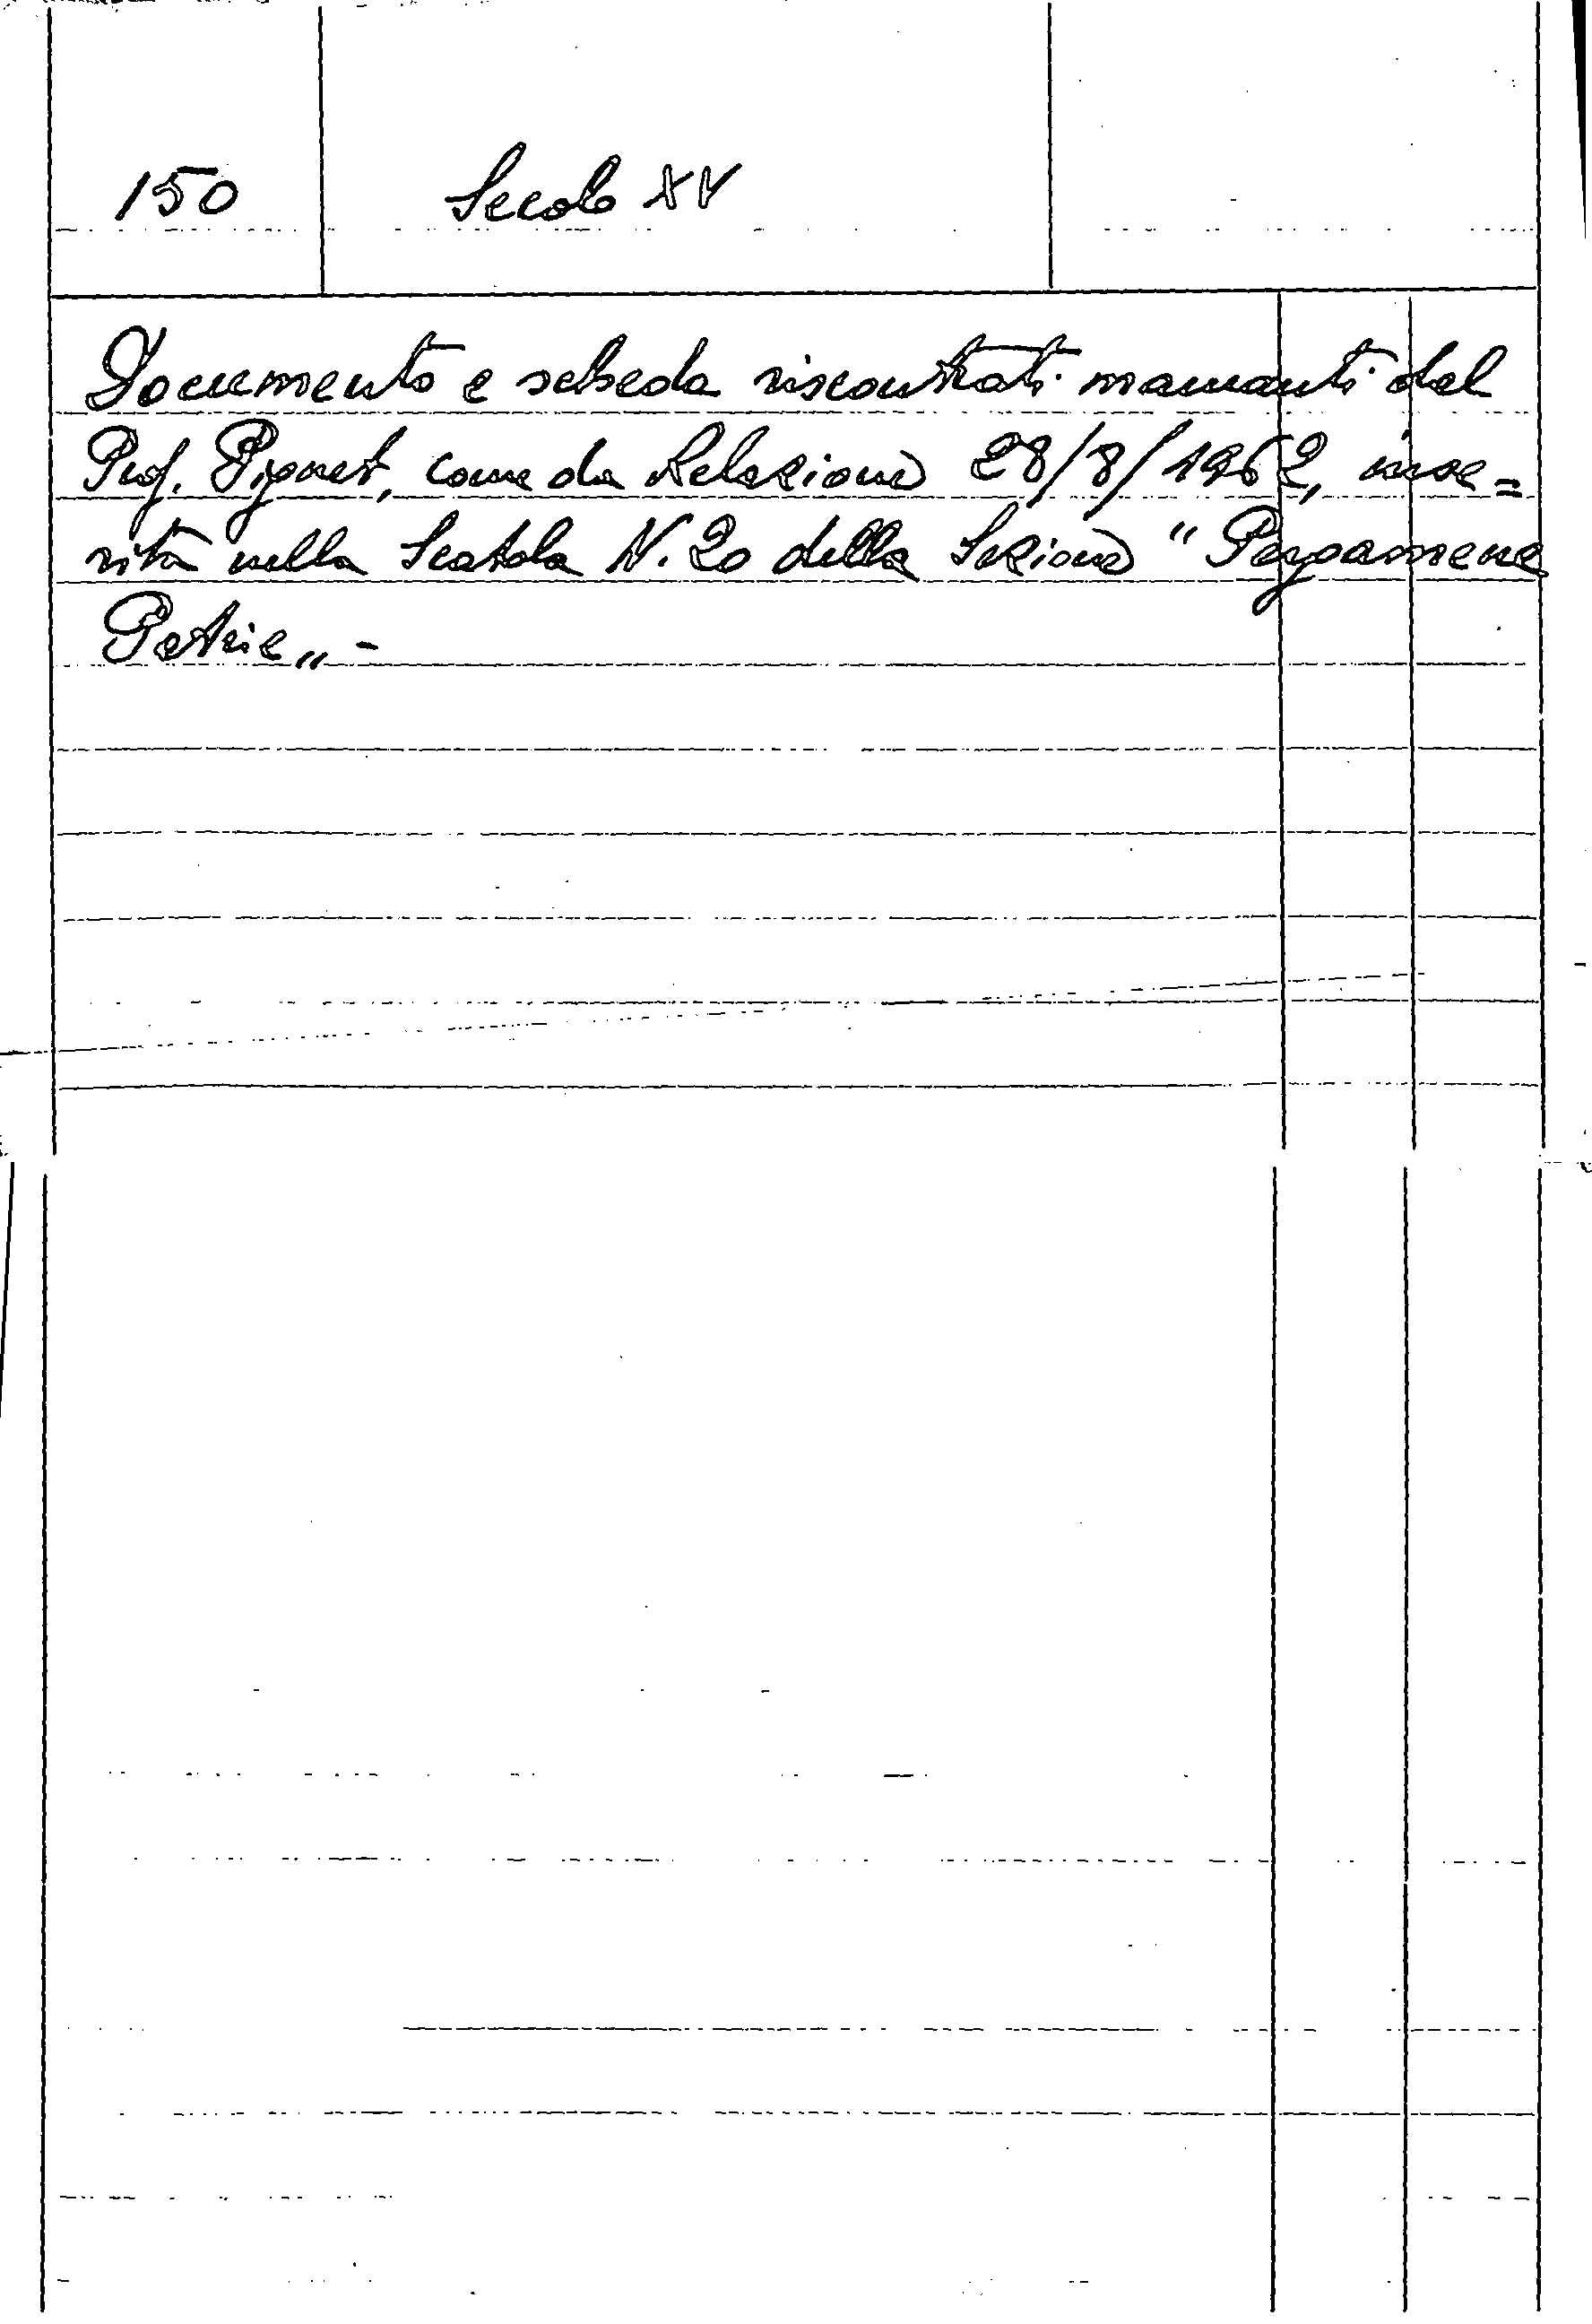 150 Secolo XV
Documento e scheda riscontrati mancanti dal
Prof. Pignet, come da Relazione 28/8/1962, inse=
rita nella Scatola N. 20 della Sezione "Pergamene
Patrie„ -